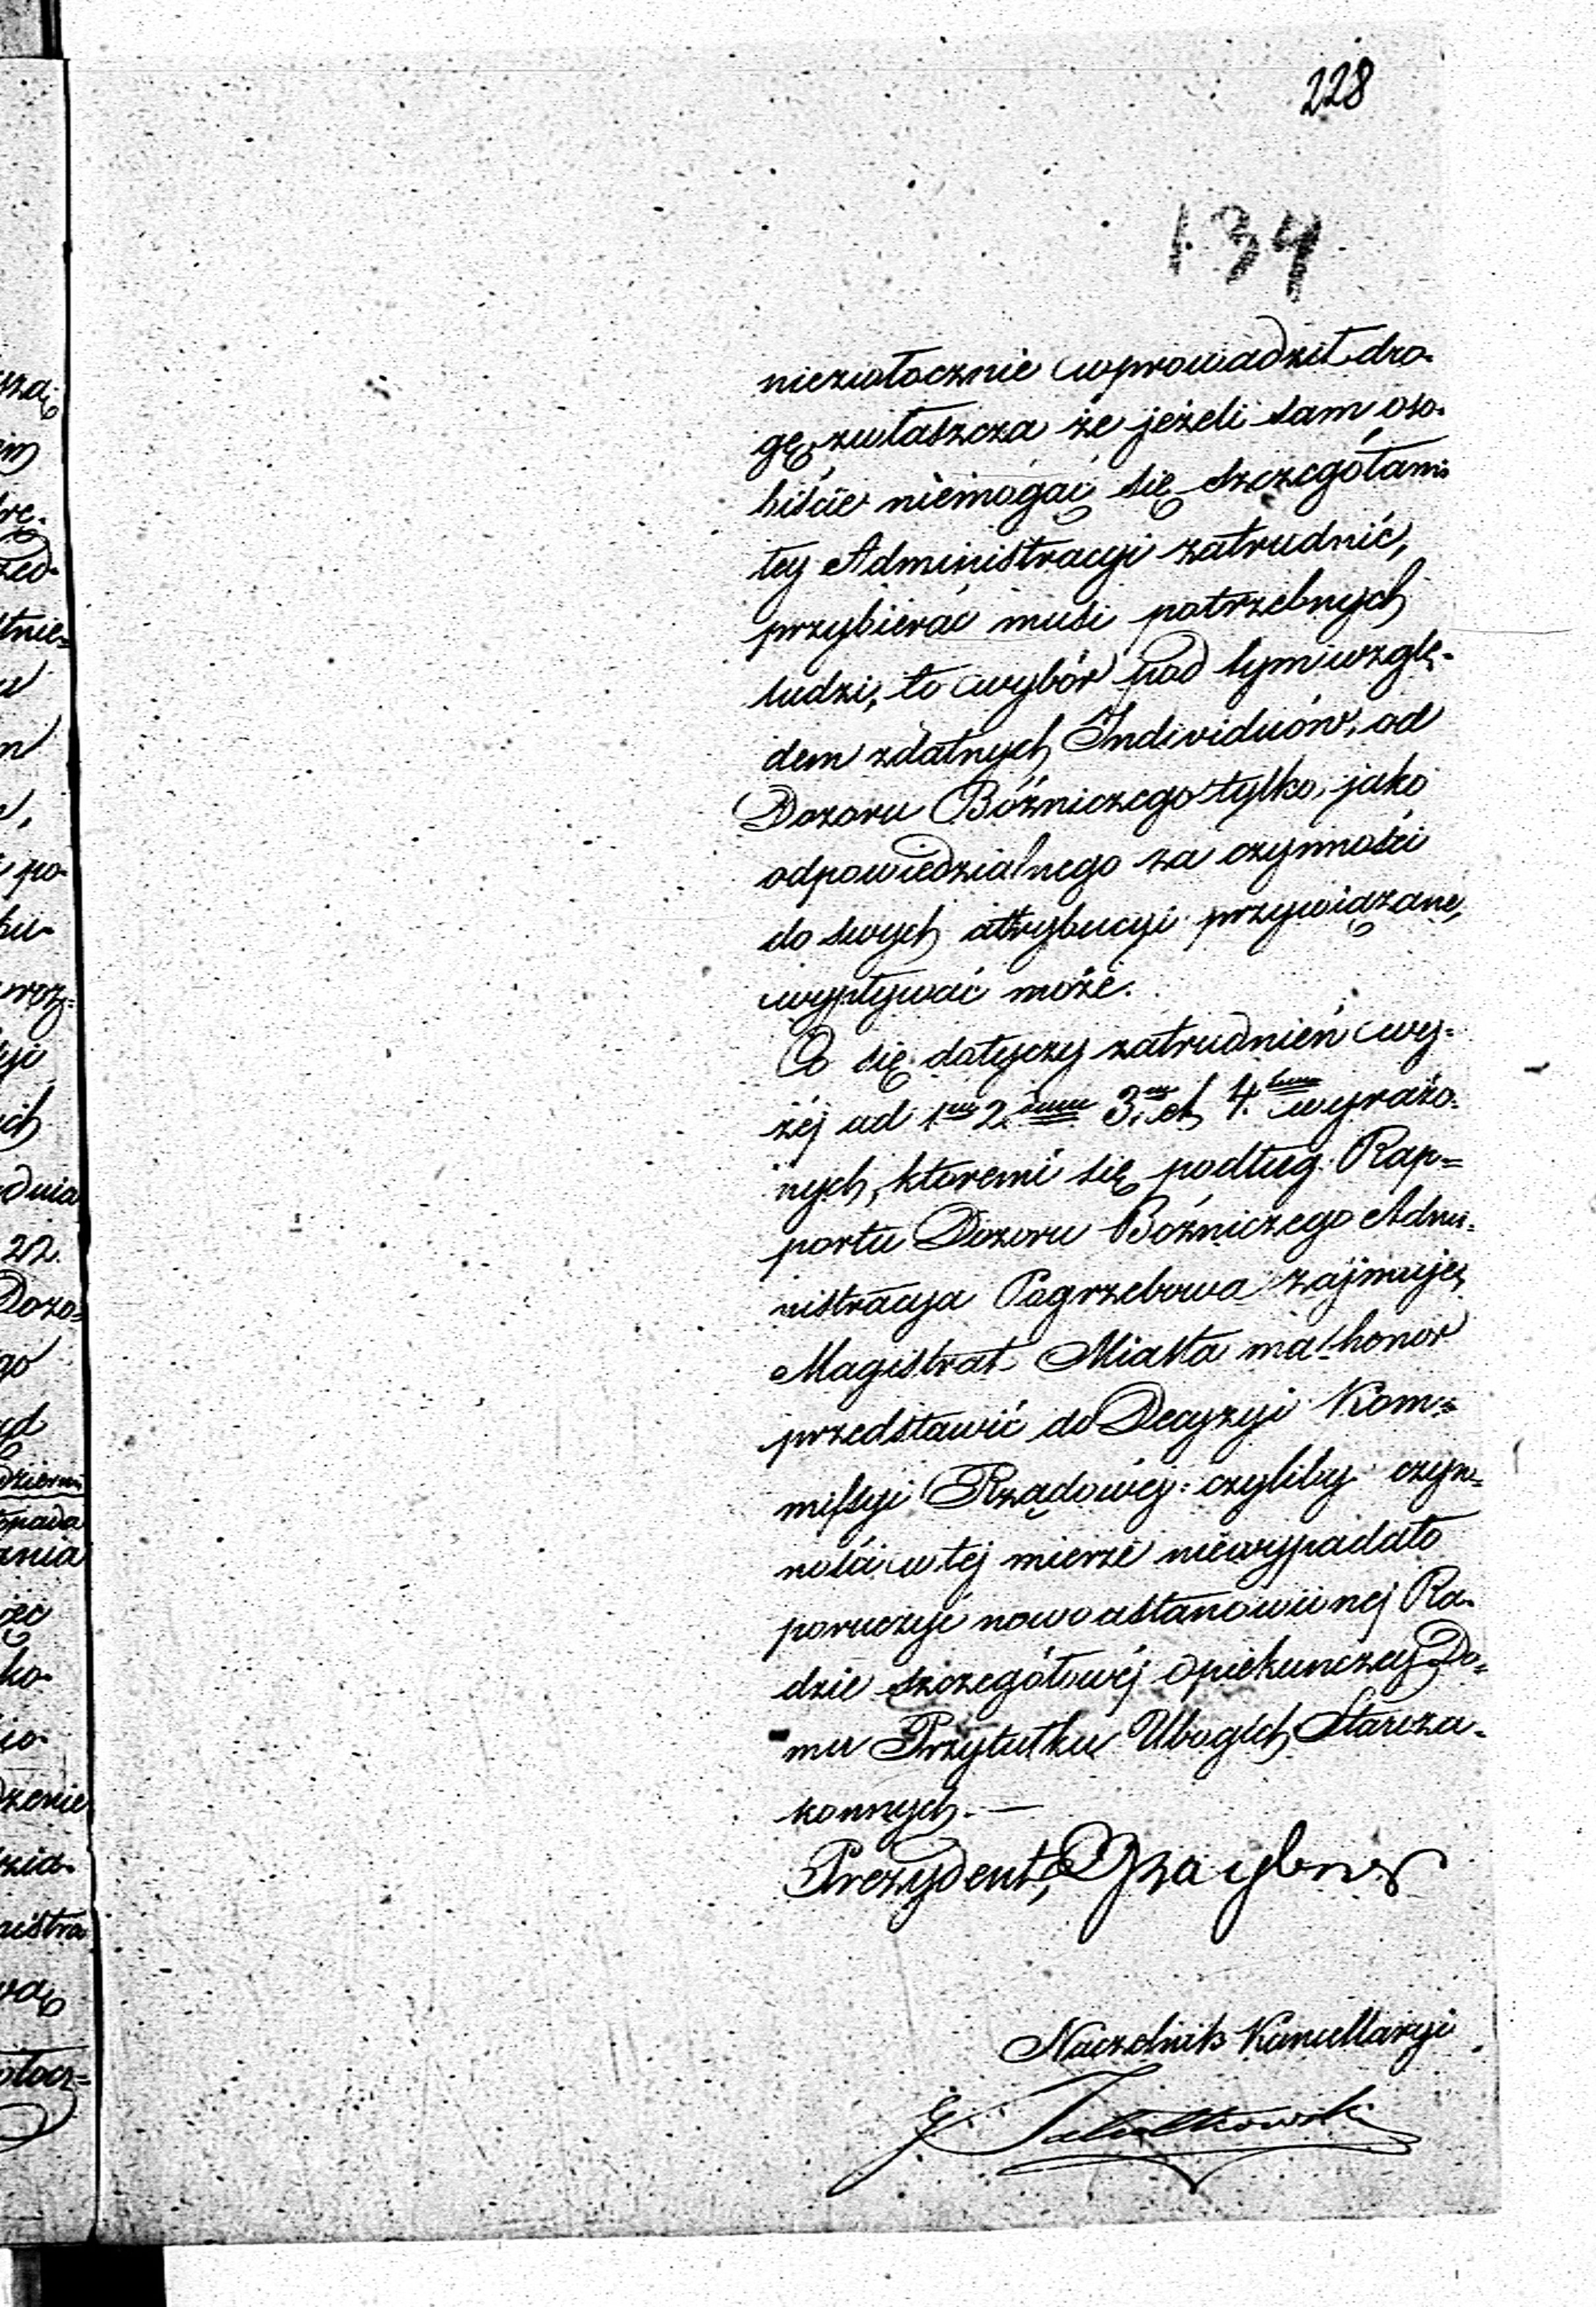 228
134
niezwłocznie wprowadził dro-
gę, zwłaszcza że jeżeli sam oso-
biście niemogąc się szczegółami
tey Administracyi zatrudnić,
przybierać musi potrzebnych
ludzi, to wybór pod tym wzglę-
dem zdatnych Individuów, od
Dozoru Bóżniczego tylko, jako
odpowiedzialnego za czynności
do swych attrybucyi przywiązane,
wypływać może.
Co się dotyczy zatrudnień wy-
żéj ad 1 2 3 et 4 wyrażo-
nych, któremi się podług Rap=
portu Dozoru Bóżniczego Admi=
nistracya Pogrzebowa zajmuje,
Magistrat Miasta ma honor
przedstawić do Decyzyi Kom=
missyi Rządowéy: czyliby czyn=
ności w tej mierze niewypadało
poruczyć nowo ustanowionej Ra-
dzie szczegółowéj Opiekunczey Do=
mu Przytułku Ubogich Staroza-
konnych. —
Prezydent, Graybner
Naczelnik Kancellaryi
szą
im
zed-
tnie=
po-
ku-
dnia
22.
Dozo=
go
pada
ania
ko-
dzenie
nistra